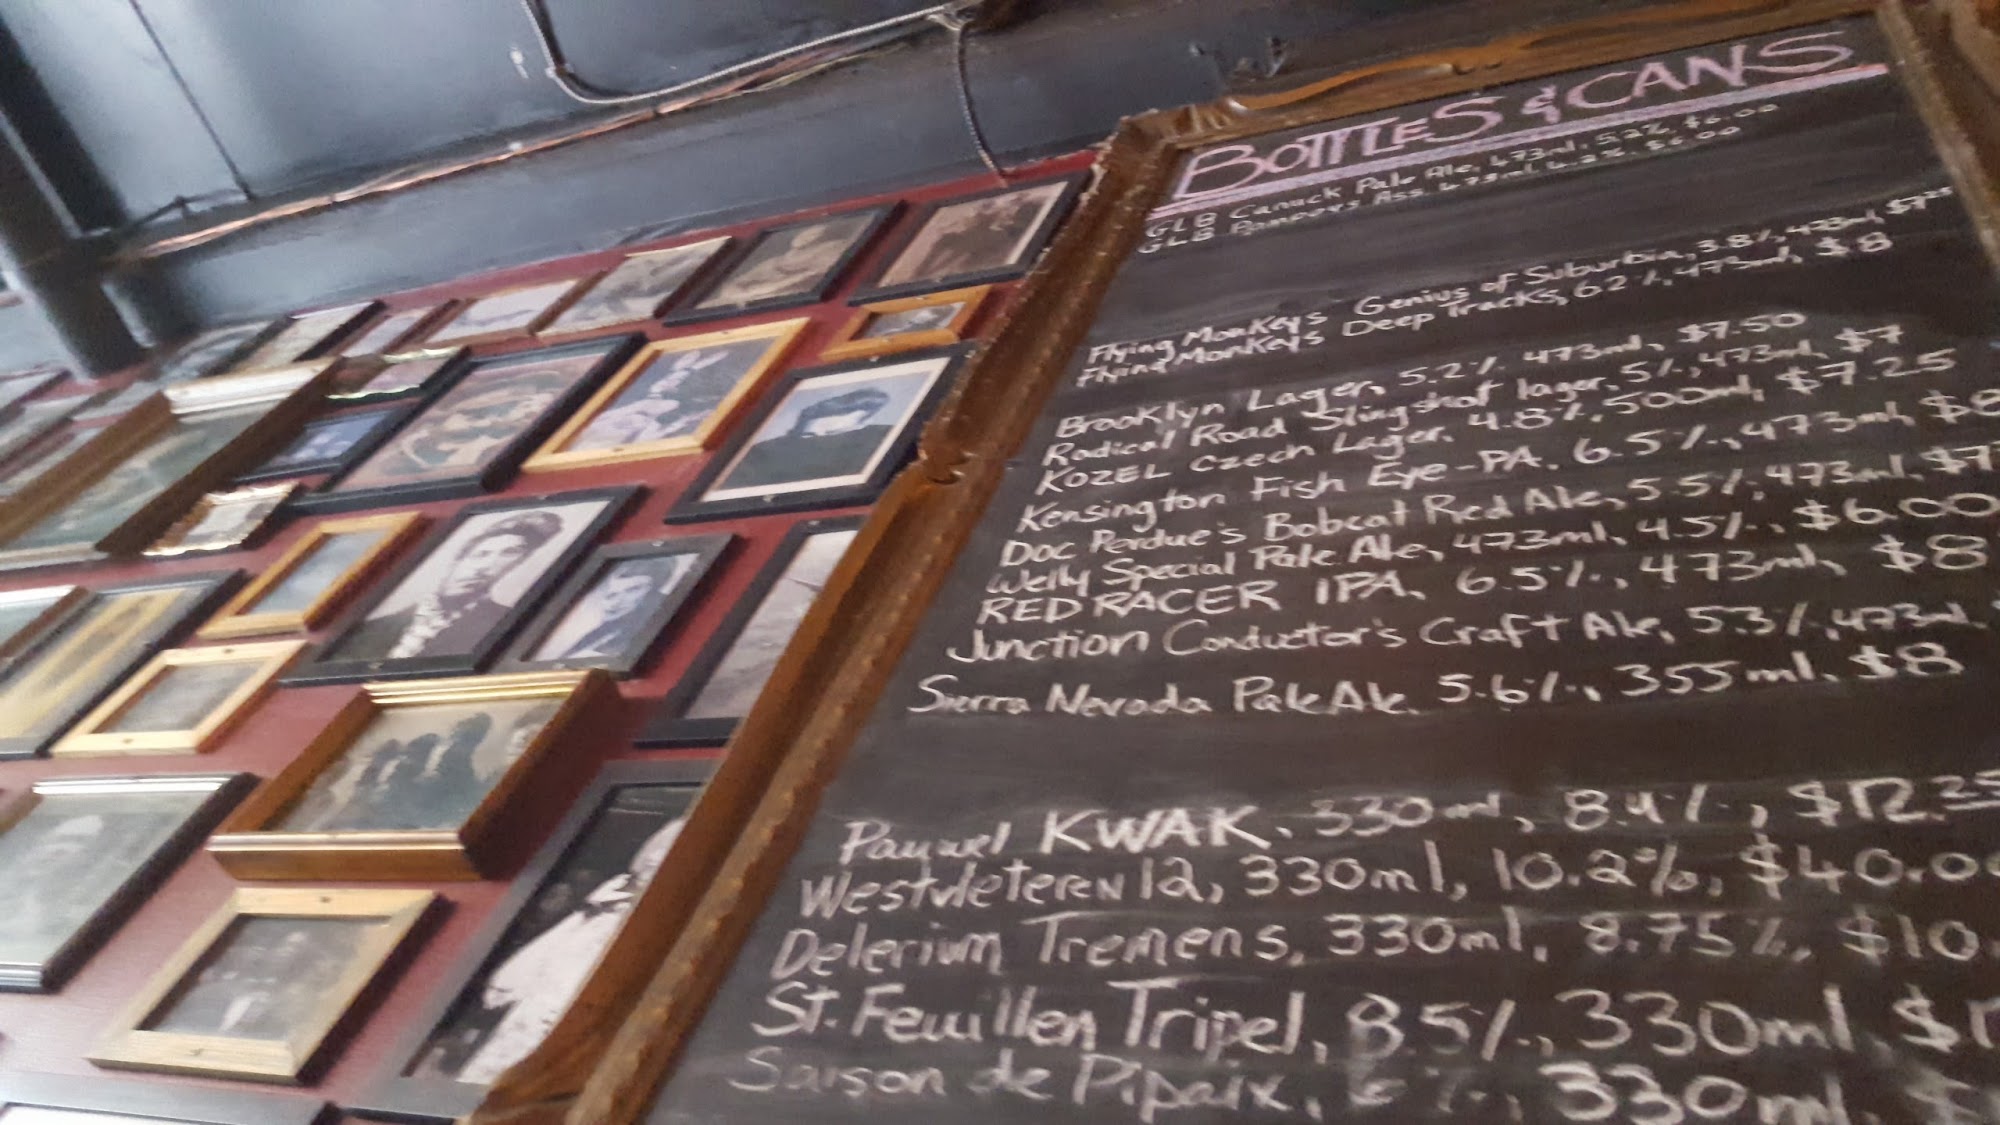 BOTTLES & CANS
GLB Canuck Pale Ale, 473ml, 5.2%, $6.00
GLB Pompous Ass, 473ml, 4.2%, $6.00
Flying Monkeys Genius of Suburbia, 3.8%, 473ml, $7.25
Flying Monkeys Deep Tracks, 6.2%, 473ml, $8
Brooklyn Lager, 5.2%. 473ml, $7.50
Radical Road Slingshot lager, 5%, 473ml, $7
KOZEL Czech Lager. 4.8%. 500ml, $7.25
Kensington Fish Eye-PA. 6.5%, 473ml, $8
Doc Perdue's Bobcat Red Ale, 5.5%, 473ml, $7
Welly Special Pale Ale, 473ml, 4.5%, $6.00
RED RACER IPA, 6.5%, 473ml, $8
Junction Conductor's Craft Ale, 5.3%, 473ml.
Sierra Nevada Pale Ale. 5.6%, 355ml, $8
Pauwel KWAK. 330ml, 8.4%, $12.25
Westvleteren 12, 330ml, 10.2%, $40.00
Delerium Tremens, 330ml, 8.75%, $10.
St. Feuillen Tripel, 8.5%, 330ml, $1
Saison de Pipaix, 6%, 330ml, $